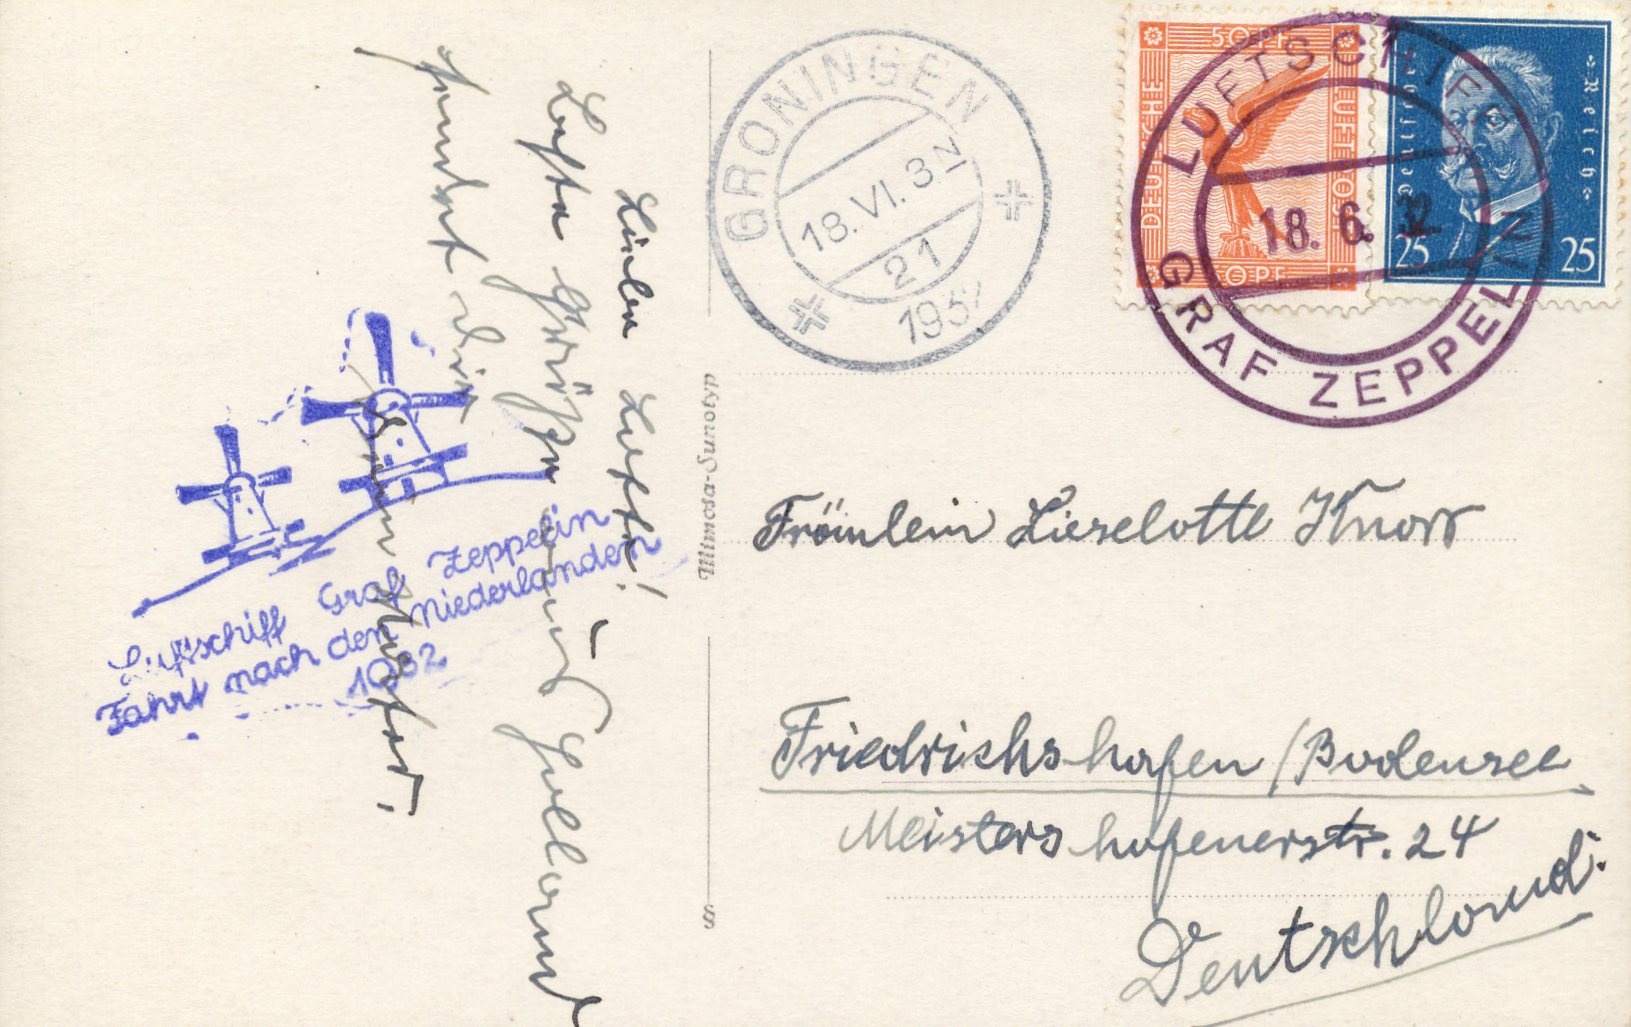 Liebe Lotte!
Beste Grüße aus Holland
sendet dir
50 PF
DEUTSCHE
LUFTPOST
50 PF
Deutsches
Reich
25 25
LUFTSCHIFF
18. 6. 32
GRAF ZEPPELIN
GRONINGEN
18. VI. 3 N
21
1932
Luftschiff Graf Zeppelin
Fahrt nach den Niederlanden
1932
Mimosa-Sunotyp
S
Fräulein Lieselotte Knorr
Friedrichshafen / Bodensee
Meistershofenerstr. 24
Deutschland.